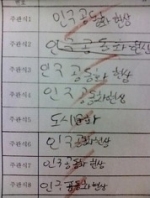 주관식1 인구공동화 현상
주관식2 인구 공동화 현상
주관식3 인구 공동화 현상
주관식4 인구 공동화현상
주관식5 도시공동화
주관식6 인구공동화현상
주관식7 인구공동화 현상
주관식8 인구 공동화현상